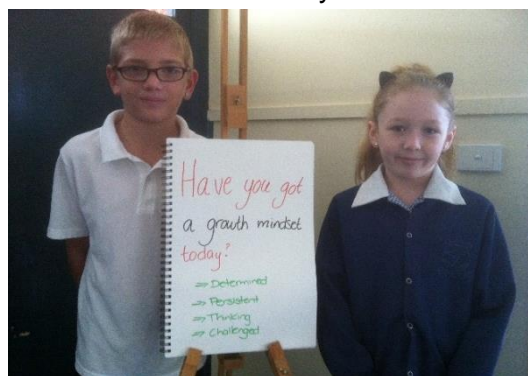 Have you got
a growth mindset
today?
⇒ Determined
⇒ Persistent
⇒ Thinking
⇒ Challenged